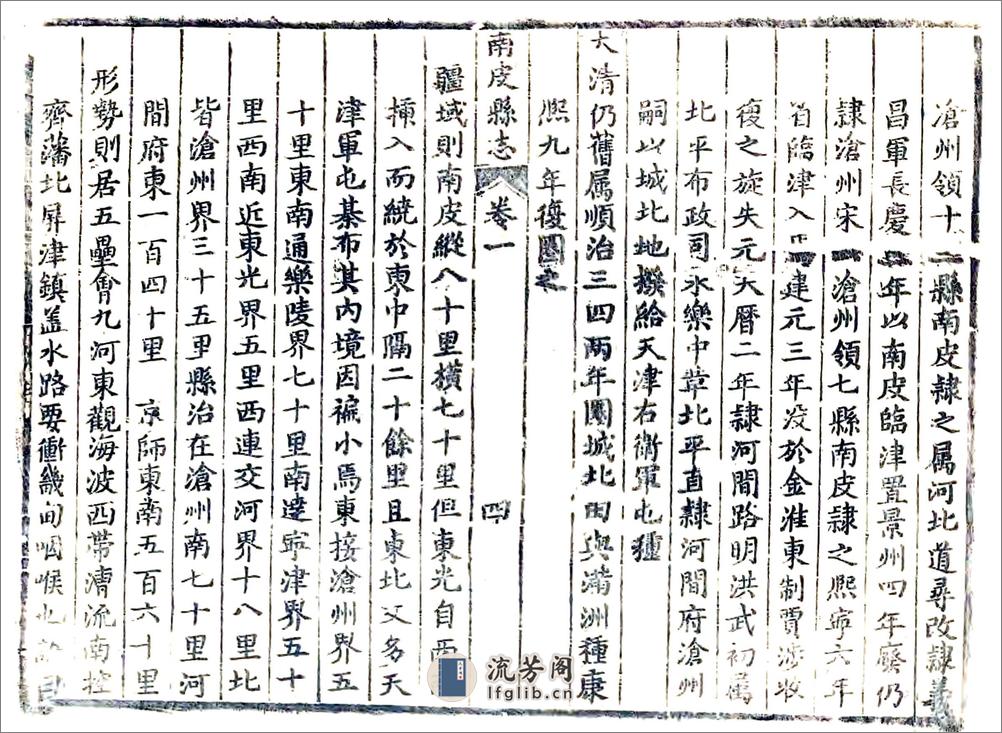 滄州領十二縣南皮隷之属河北道尋改隷義
昌軍長慶二年以南皮臨津置景州四年廢仍
隷滄州宋滄州領七縣南皮隷之熈寧六年
省臨津入建元三年没於金淮東制賈涉收
復之旋失元天暦二年隷河間路明洪武初属
北平布政司永樂中革北平直隷河間府滄州
嗣以城北地撥給天津右衛軍屯種
大清仍舊属順治三四两年圈城北田與滿洲種康
熈九年復圈之
南皮縣志
卷一
四
疆域則南皮縱八十里橫七十里但東光自西
挿入而繞於東中隔二十餘里且東北又多天
津軍屯棊布其内境因褊小焉東接滄州界五
十里東南通樂陵界七十里南達寧津界五十
里西南近東光界五里西連交河界十八里北
皆滄州界三十五里縣治在滄州南七十里河
間府東一百四十里 京師東南五百六十里
形勢則居五壘會九河東觀海波西帶漕流南控
齊藩北屏津鎮盖水路要衝畿甸咽喉也
流芳阁
lfglib.cn